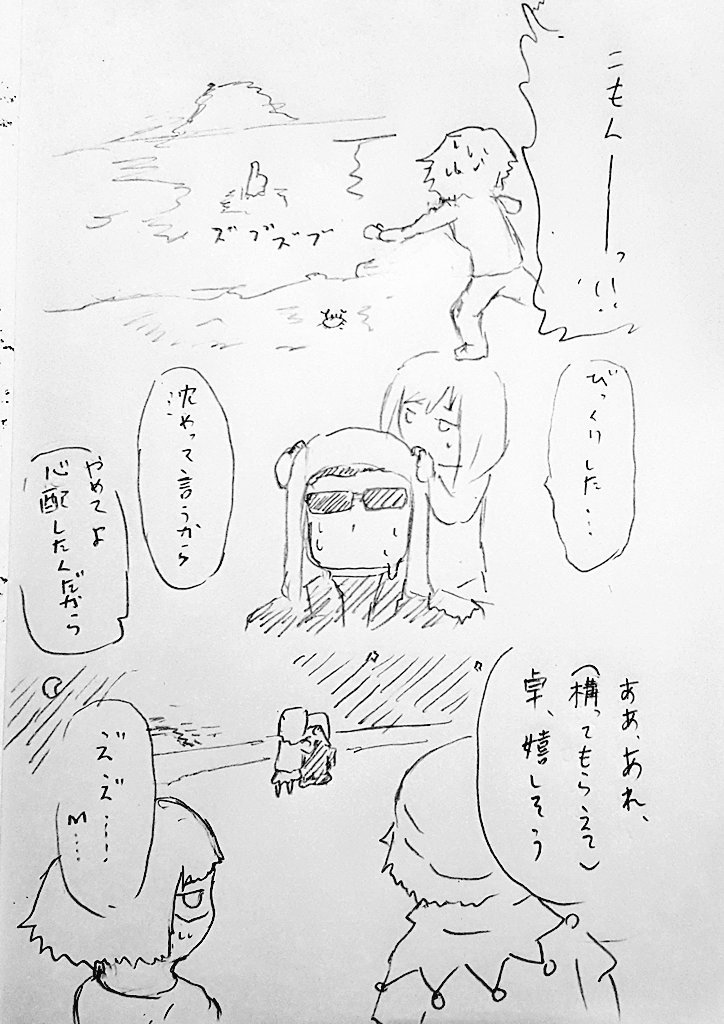 こもんーーっ!!
ズブズブ
びっくりした…
沈やって言うから
やめてよ
心配したんだから
ああ、あれ、
(構ってもらえて)
卓、嬉しそう
ズズ……
M…